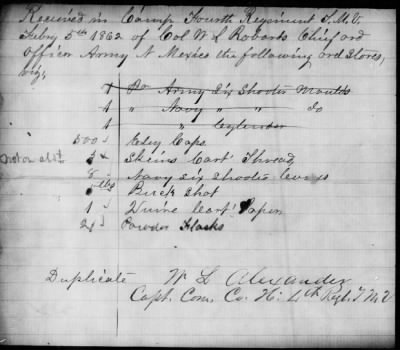 Received in Camp Fourth Regiment T.M.V.
Feby 5th 1862 of Col W L Robards Chief ord
officer Army N Mexico the following ord Stores,
viz,
Pr Army Six Shooter Moulds
1 " Navy " " Do
1 " Cylender
500 Eley Caps
Skeins Cart' Thread
8 Navy six shooter
lbs Buck Shot
1 Quire Cart' Paper
2 Powder Flasks
Duplicate W L Alexander
Capt. Com. Co. H. 4th Regt. T M V